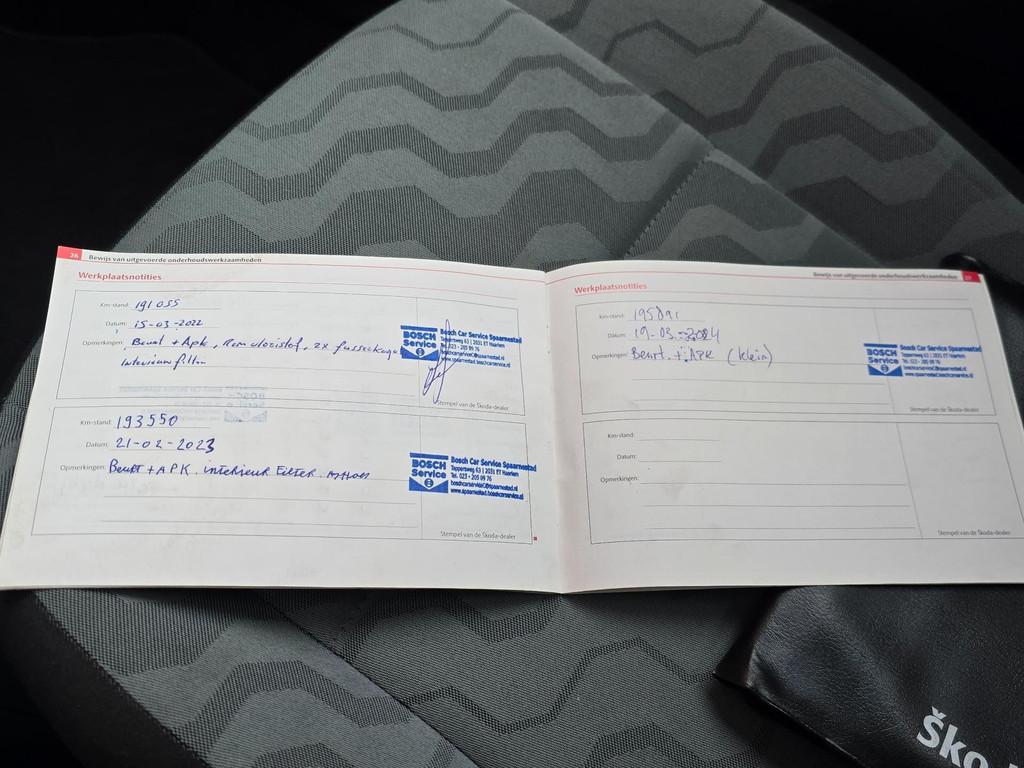 26 Bewijs van uitgevoerde onderhoudswerkzaamheden
Werkplaatsnotities
Km-stand: 191 055
Datum: 15-03-2022
Opmerkingen: Beurt + Apk, Remvloeistof, 2x
Interieurfilter
BOSCH Service
Bosch Car Service Spaarnestad
Tappersweg 63 | 2031 ET Haarlem
Tel. 023 - 205 09 76
boschcarservice@spaarnestad.nl
www.spaarnestad.boschcarservice.nl
Stempel van de Škoda-dealer
Km-stand: 193550
Datum: 21-02-2023
Opmerkingen: Beurt + APK. interieur Filter.
BOSCH Service
Bosch Car Service Spaarnestad
Tappersweg 63 | 2031 ET Haarlem
Tel. 023 - 205 09 76
boschcarservice@spaarnestad.nl
www.spaarnestad.boschcarservice.nl
Stempel van de Škoda-dealer
Bewijs van uitgevoerde onderhoudswerkzaamheden 27
Werkplaatsnotities
Km-stand: 195891
Datum: 19-03-2024
Opmerkingen: Beurt + APK (klein)
BOSCH Service
Bosch Car Service Spaarnestad
Tappersweg 63 | 2031 ET Haarlem
Tel. 023 - 205 09 76
boschcarservice@spaarnestad.nl
www.spaarnestad.boschcarservice.nl
Stempel van de Škoda-dealer
Km-stand:
Datum:
Opmerkingen:
Stempel van de Škoda-dealer
Ško